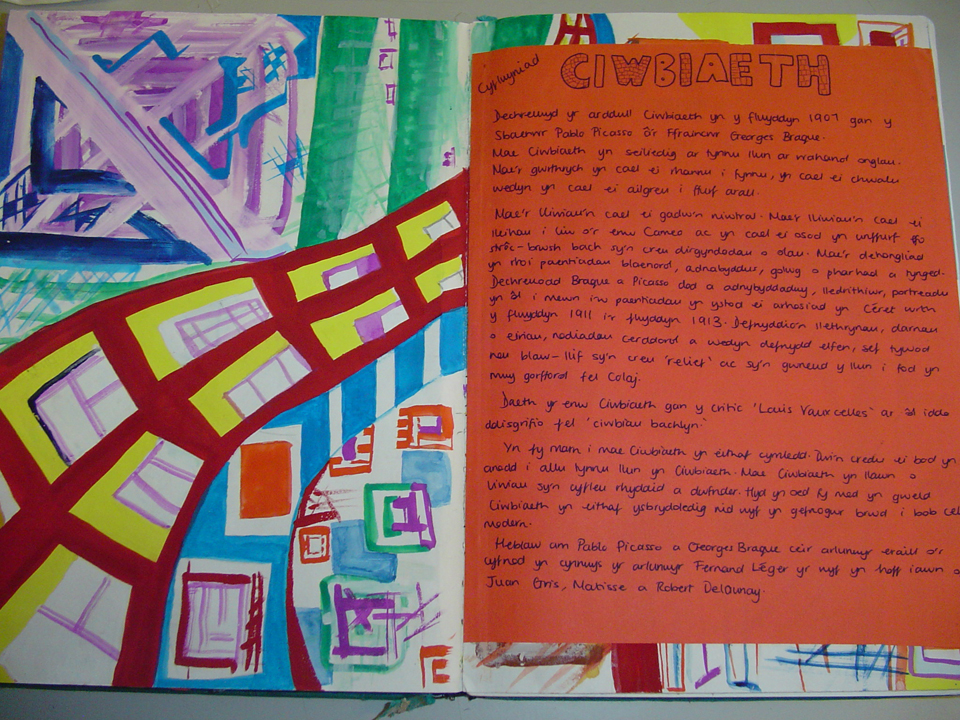 Cyflwyniad
CIWBIAETH
Dechreuwyd yr arddull Ciwbiaeth yn y flwyddyn 1907 gan y
Sbaenwr Pablo Picasso a'r Ffrancwr Georges Braque.
Mae Ciwbiaeth yn seiliedig ar tynnu llun ar wahanol onglau.
Mae'r gwrthrych yn cael ei rhannu i fynnu, yn cael ei chwalu
wedyn yn cael ei ailgreu i ffurf arall.
Mae'r lliwiau'n cael ei gadw'n niwtral. Mae'r lliwiau'n cael ei
lleihau i liw o'r enw Cameo ac yn cael ei osod yn unffurf
strôc-brwsh bach sy'n creu dirgryndodau o olau. Mae'r dehongliad
yn rhoi paentiadau blaenorol, adnabyddus, golwg o pharhad a tynged.
Dechreuodd Braque a Picasso dod a adnybyddadwy, lledrithiwr, portreadu
yn ôl i mewn i'w paentiadau yn ystod ei arhosiad yn Céret wrth
y flwyddyn 1911 i'r flwyddyn 1913. Defnyddio'n llethrynau, darnau
o eiriau, nodiadau cerddorol a wedyn defnydd elfen, sef tywod
neu blaw-llif sy'n creu 'relief' ac sy'n gwneud y llun i fod yn
mwy gorfforol fel Colaj.
Daeth yr enw Ciwbiaeth gan y critic 'Louis Vauxcelles' ar ôl iddo
ddisgrifio fel 'ciwbiau bachlyn.'
Yn fy marn i mae Ciwbiaeth yn eithaf cymleth. Dwi'n credu ei bod yn
anodd i allu tynnu llun yn Ciwbiaeth. Mae Ciwbiaeth yn llawn o
liwiau sy'n cyfleu rhyddid a dwfnder. Hyd yn oed fy mod yn gweld
Ciwbiaeth yn eithaf ysbrydoledig nid wyf yn gefnogwr brwd i bob celf
modern.
Heblaw am Pablo Picasso a Georges Braque ceir arlunwyr eraill o'r
cyfnod yn cynnwys yr arlunwyr Fernand Léger yr wyf yn hoff iawn o
Juan Gris, Matisse a Robert Delaunay.